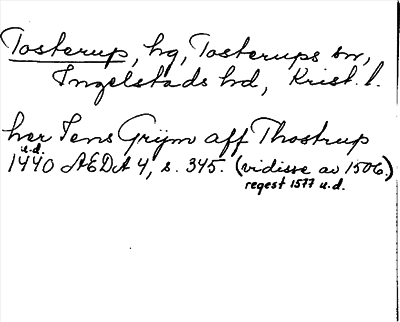 Tosterup, hg, Tosterups sn,
Ingelstads hd, Krist. l.
her Jens Grijm aff Thostrup
u.d.
1440 ÆDA 4, s. 345. (vidisse av 1506.)
regest 1577 u.d.